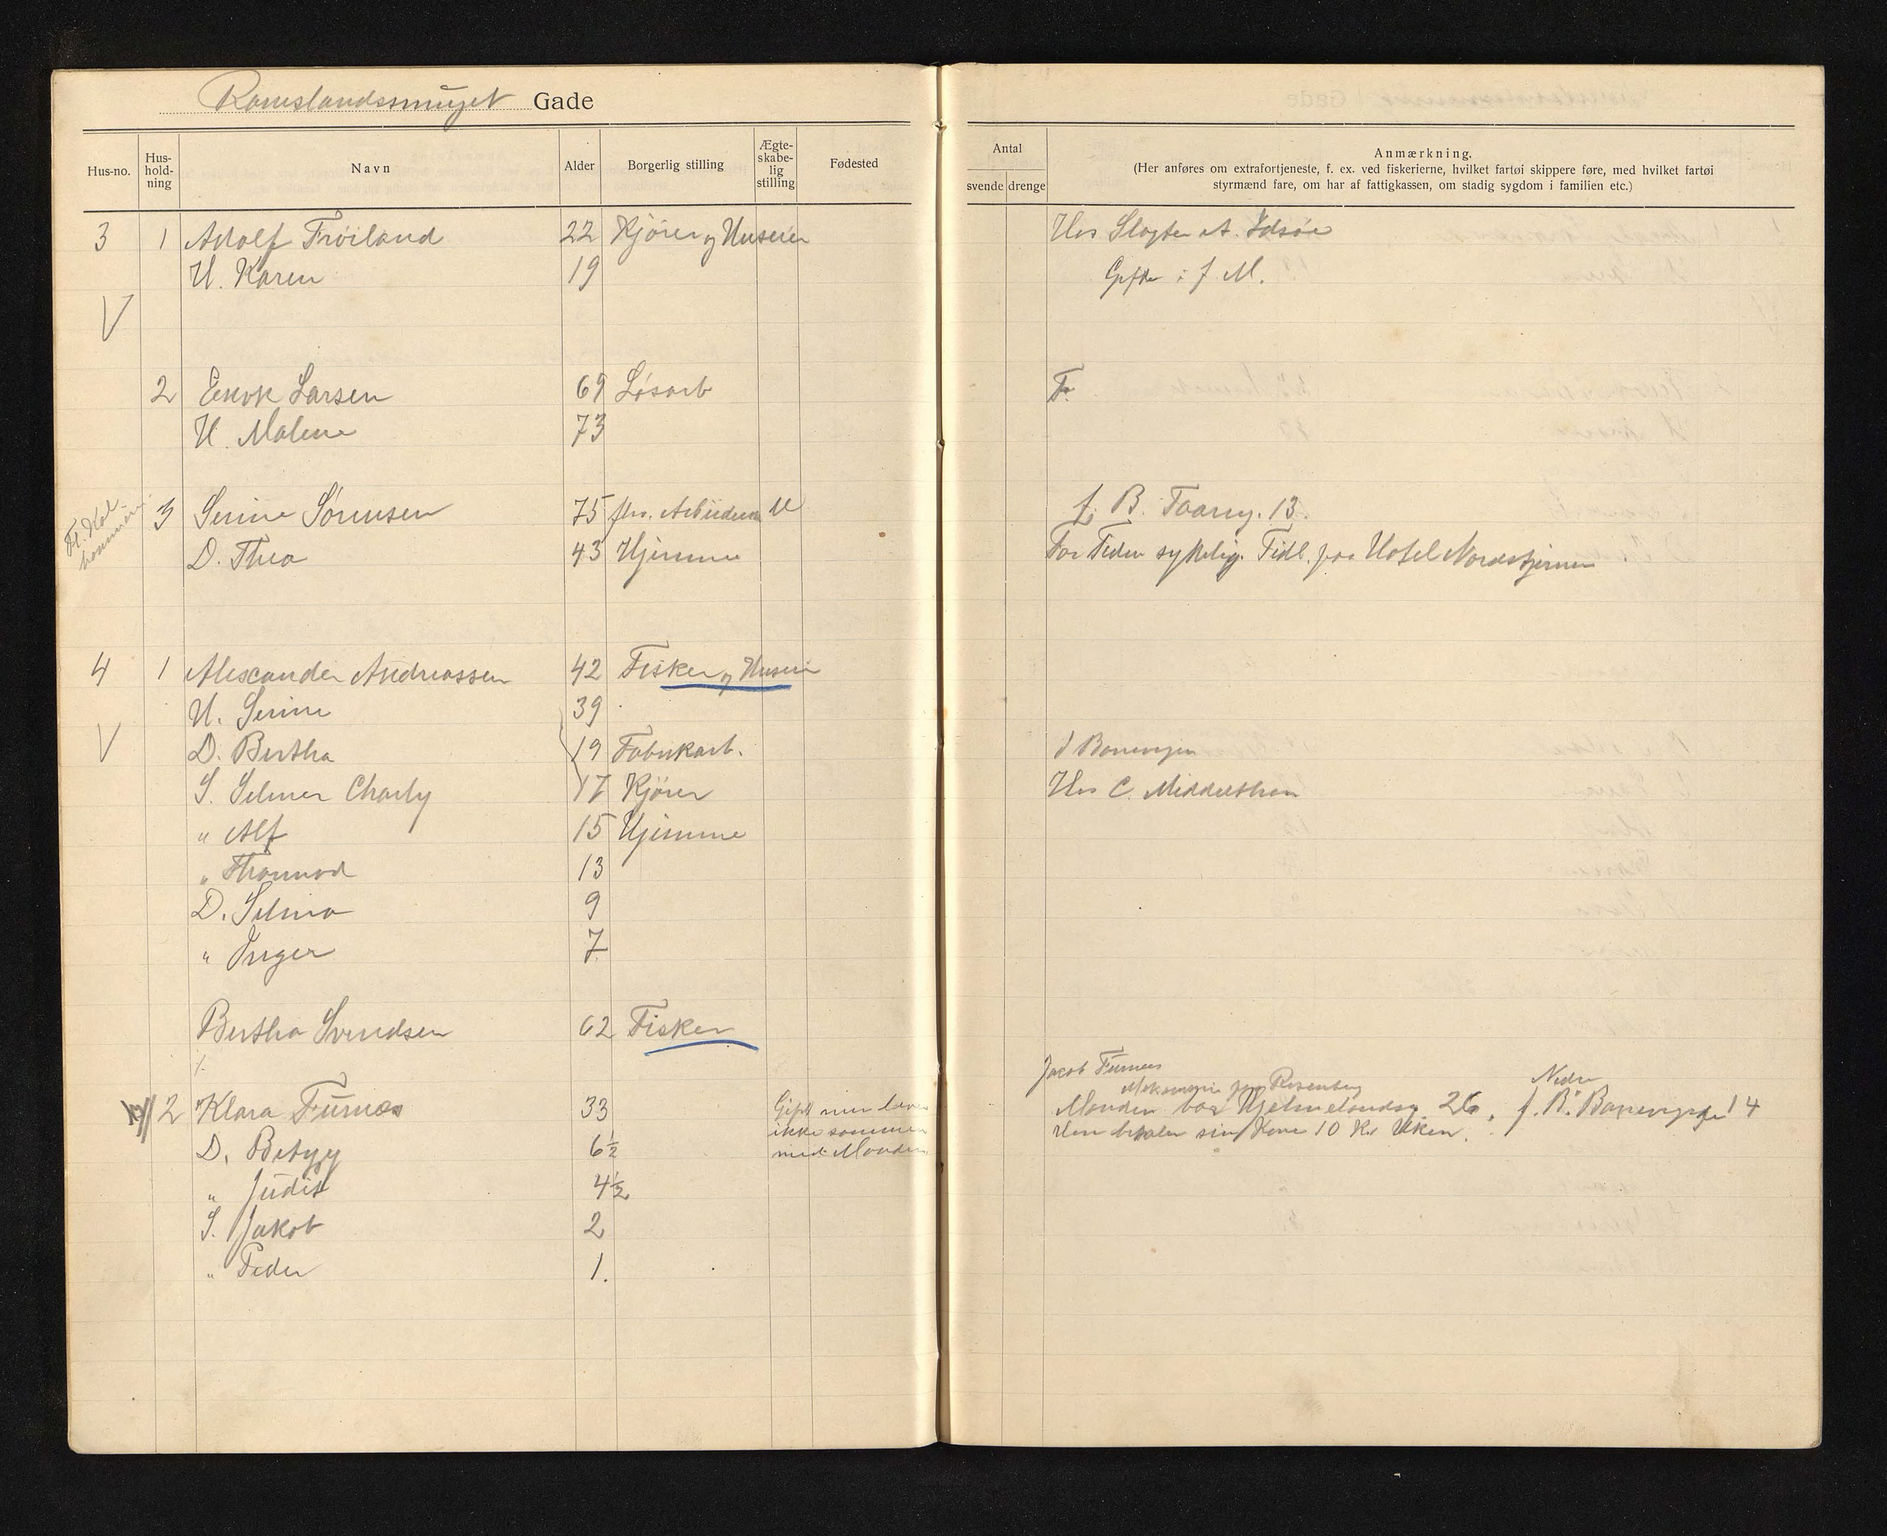 Ramslandssmuget Gade
Hus-no. Hus-hold-ning Navn Alder Borgerlig stilling Ægte-skabe-lig stilling Fødested
Antal
svende drenge
Anmærkning.
(Her anføres om extrafortjeneste, f. ex. ved fiskerierne, hvilket fartøi skippere føre, med hvilket fartøi
styrmænd fare, om har af fattigkassen, om stadig sygdom i familien etc.)
3 1 Adolf Frøiland 22 Kjører og Huseier Hos Slagter A. Idsøe
H. Karen 19 Gifte i f. M.
V
2 Enok Larsen 69 Løsarb F.
H. Malene 73
3 Serine Sørensen 75 fhv. U f. B. Taarng. 13.
D. Thea 43 Hjemme For Tiden sykelig. Tidl. paa Hotel Nordstjernen
4 1 Alexander Andreassen 42 Fisker og Huseier
H. Serine 39
V D. Bertha 19 Fabrikarb. I Banevigen
S. Selmer Charly 17 Kjører Hos C. Middelthon
" Alf 15 Hjemme
" Thormod 13
D. Selma 9
" Inger 7
Bertha Svendsen 62 Fisker
Jacob Furnees
Rosenberg Nedre
2 Klara Furnæs 33 Gift men lever Manden bor Hjelmelandsg. 26. f. B. Banevigsg. 14
ikke sammen Han betaler sin Kone 10 Kr Uken.
D. Betzy 6½ med Manden
" Judit 4½
S. Jakob 2
" Peder 1.